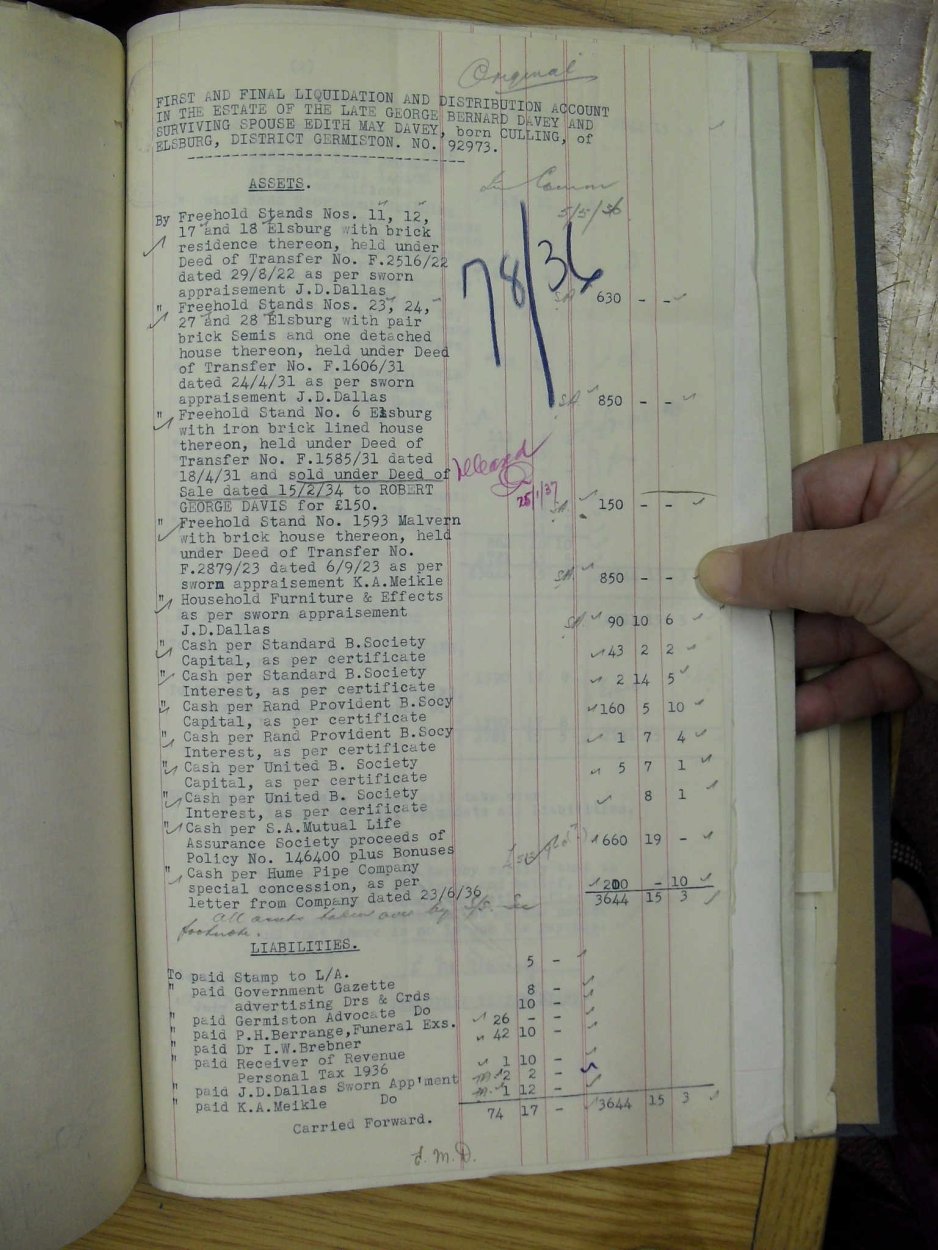 Original
FIRST AND FINAL LIQUIDATION AND DISTRIBUTION ACCOUNT
IN THE ESTATE OF THE LATE GEORGE BERNARD DAVEY AND
SURVIVING SPOUSE EDITH MAY DAVEY, born CULLING, of
ELSBURG, DISTRICT GERMISTON. NO. 92973.
ASSETS.
5/5/36
78/36
By Freehold Stands Nos. 11, 12,
17 and 18 Elsburg with brick
residence thereon, held under
Deed of Transfer No. F.2516/22
dated 29/8/22 as per sworn
appraisement J.D.Dallas SA 630 - -
" Freehold Stands Nos. 23, 24,
27 and 28 Elsburg with pair
brick Semis and one detached
house thereon, held under Deed
of Transfer No. F.1606/31
dated 24/4/31 as per sworn
appraisement J.D.Dallas SA 850 - -
" Freehold Stand No. 6 Elsburg
with iron brick lined house
thereon, held under Deed of
Transfer No. F.1585/31 dated
18/4/31 and sold under Deed of
Sale dated 15/2/34 to ROBERT
25/1/37
GEORGE DAVIS for £150. SA 150 - -
" Freehold Stand No. 1593 Malvern
with brick house thereon, held
under Deed of Transfer No.
F.2879/23 dated 6/9/23 as per
sworn appraisement K.A.Meikle SA 850 - -
" Household Furniture & Effects
as per sworn appraisement
J.D.Dallas SA 90 10 6
" Cash per Standard B.Society
Capital, as per certificate 43 2 2
" Cash per Standard B.Society
Interest, as per certificate 2 14 5
" Cash per Rand Provident B.Socy
Capital, as per certificate 160 5 10
" Cash per Rand Provident B.Socy
Interest, as per certificate 1 7 4
" Cash per United B. Society
Capital, as per certificate 5 7 1
" Cash per United B. Society
Interest, as per cerificate 8 1
" Cash per S.A.Mutual Life
Assurance Society proceeds of
Policy No. 146400 plus Bonuses 660 19 -
" Cash per Hume Pipe Company
special concession, as per
letter from Company dated 23/6/36 200 - 10
3644 15 3
All assets taken over by S/S. See
footnote.
LIABILITIES.
To paid Stamp to L/A. 5 -
" paid Government Gazette
advertising Drs & Crds 8 -
" paid Germiston Advocate Do 10 -
" paid P.H.Berrange,Funeral Exs. 26 - -
" paid Dr I.W.Brebner 42 10 -
" paid Receiver of Revenue
Personal Tax 1936 1 10 -
" paid J.D.Dallas Sworn App'ment 2 2 -
" paid K.A.Meikle Do 1 12 -
Carried Forward. 74 17 - 3644 15 3
E.M.D.